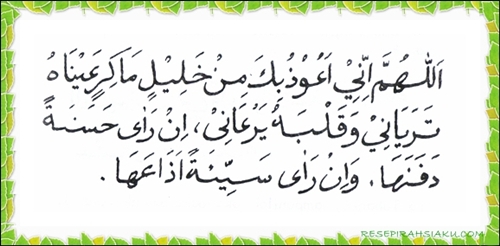 اَللّٰهُمَّ اِنِّيْ اَعُوْذُبِكَ مِنْ خَلِيْلٍ مَاكِرٍ عَيْنَاهُ
تَرَيَانِيْ وَقَلْبَهُ يَرْعَانِيْ، اِنْ رَاٰى حَسَنَةً
دَفَنَهَا. وَاِنْ رَاٰى سَيِّئَةً اَذَاعَهَا.
RESEPIRAHSIAKU.COM